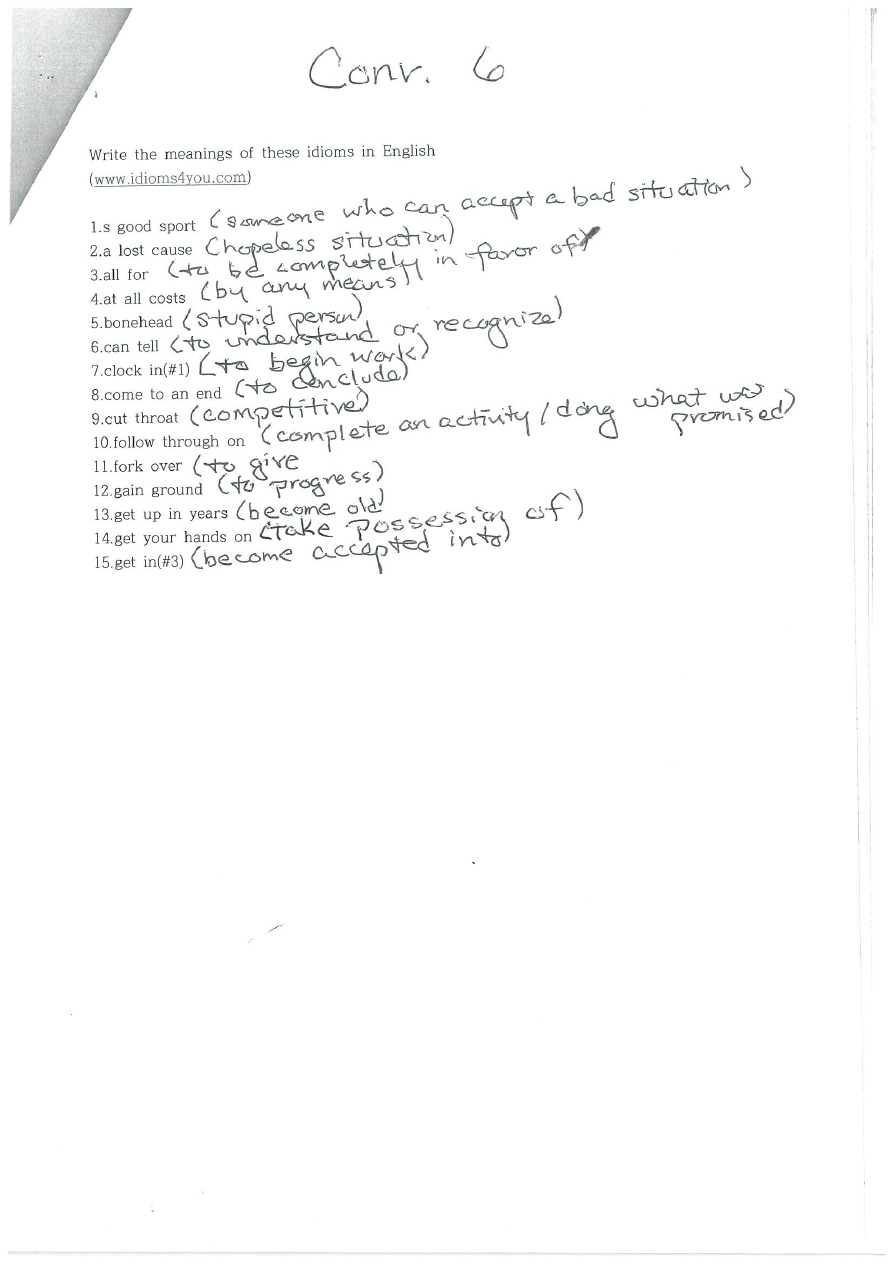 Conv. 6
Write the meanings of these idioms in English
(www.idioms4you.com)
1.s good sport (someone who can accept a bad situation)
2.a lost cause (hopeless situation)
3.all for (to be completely in favor of)
4.at all costs (by any means)
5.bonehead (stupid person)
6.can tell (to understand or recognize)
7.clock in(#1) (to begin work)
8.come to an end (to conclude)
9.cut throat (competitive)
10.follow through on (complete an activity / doing what was promised)
11.fork over (to give
12.gain ground (to progress)
13.get up in years (become old)
14.get your hands on (take possession of)
15.get in(#3) (become accepted into)